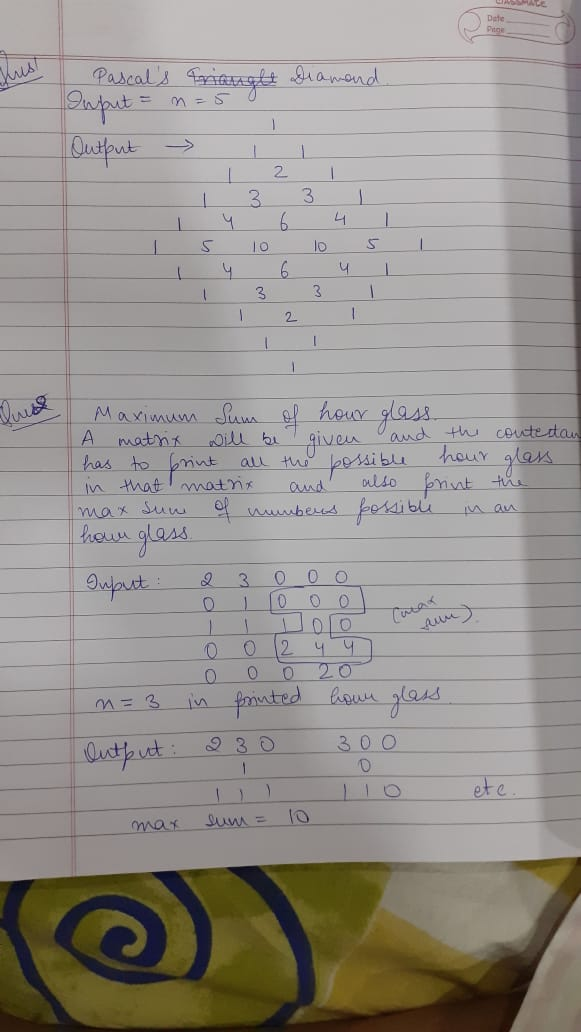 CLASSMATE
Date
Page
Ques1
Pascal's Triangle Diamond
Input = n = 5
1
Output → 1 1
1 2 1
1 3 3 1
1 4 6 4 1
1 5 10 10 5 1
1 4 6 4 1
1 3 3 1
1 2 1
1 1
1
Ques2
Maximum Sum of hour glass
A matrix will be given and the contestan
has to print all the possible hour glass
in that matrix and also print the
max sum of numbers possible in an
hour glass.
Input : 2 3 0 0 0
0 1 0 0 0
1 1 1 0 0 (max sum).
0 0 2 4 4
0 0 0 2 0
n = 3 in printed hour glass.
Output : 2 3 0 3 0 0
1 0
1 1 1 1 1 0 etc.
max sum = 10